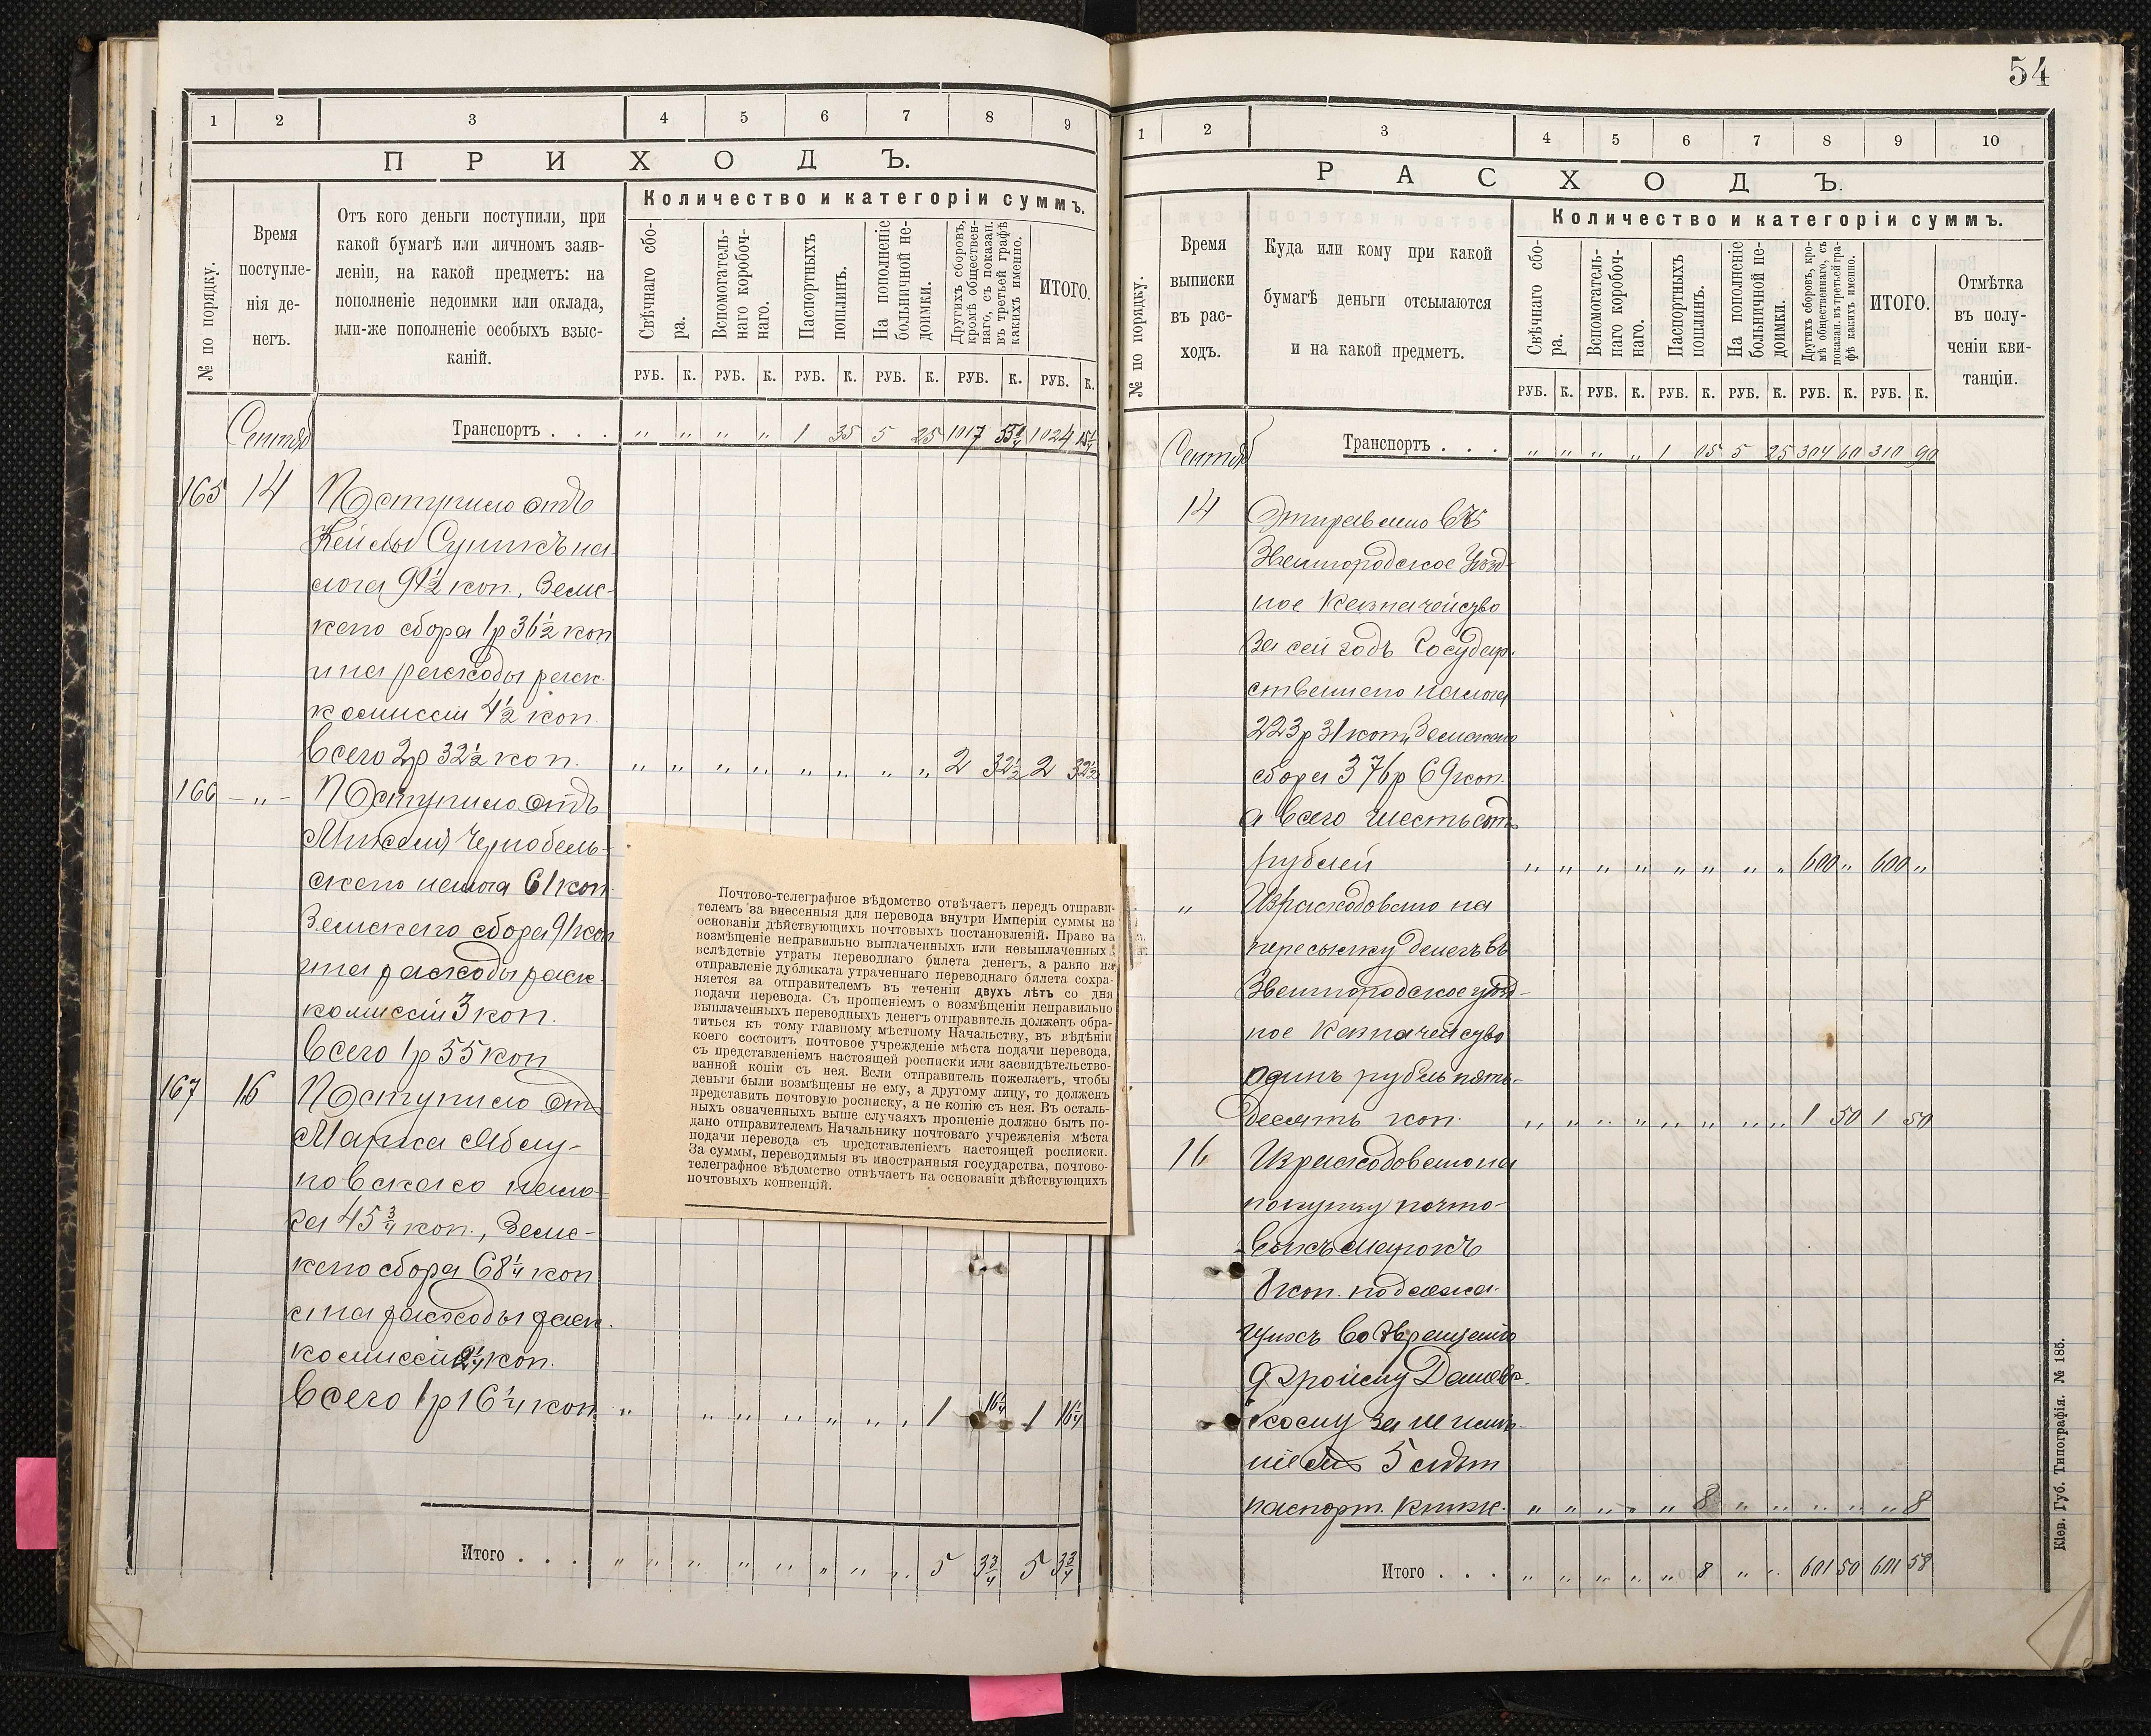 54
1 2 3 4 5 6 7 8 9
ПРИХОДЪ.
№ по порядку.
Время
поступле-
нія де-
негъ.
Отъ кого деньги поступили, при
какой бумагѣ или личномъ заяв-
леніи, на какой предметъ: на
пополненіе недоимки или оклада,
или-же пополненіе особыхъ взыс-
каній.
Количество и категоріи суммъ.
Свѣчнаго сбо-
ра.
Вспомогатель-
наго короboч-
наго.
Паспортныхъ
пошлинъ.
На пополненіе
больничной не-
доимки.
Другихъ сборовъ,
кромѣ обществен-
наго, съ показан.
въ третьей графѣ
какихъ именно.
ИТОГО.
РУБ. К. РУБ. К. РУБ. К. РУБ. К. РУБ. К. РУБ. К.
Сентяб
Транспортъ . . . „ „ „ „ 1 35 5 25 1017 55¼ 1024 15¼
165 14 Поступило отъ
на-
лога 91½ коп., Земс-
каго сбора 1р 36½ коп
и на расходы раск.
комиссіи 4½ коп.
Всего 2р 32½ коп. „ „ „ „ „ „ „ „ 2 32½ 2 32½
166 – „ – Поступило отъ
Чернобель-
скаго налога 61 коп.
Земскаго сбора 91 коп
и на расходы раск.
комиссіи 3 коп.
Всего 1р 55 коп
167 16 Поступило отъ
Марка
нало-
га 45¾ коп., Земс-
каго сбора 68¼ коп
и на расходы раск.
комиссіи 2¼ коп.
Всего 1р 16¼ коп. „ „ „ „ „ „ „ 1 16¼ 1 16¼
Итого . . . „ „ „ „ „ „ „ „ 5 3¾ 5 3¾
Почтово-телеграфное вѣдомство отвѣчаетъ передъ отправи-
телемъ за внесенныя для перевода внутри Имперіи суммы на
основаніи дѣйствующихъ почтовыхъ постановленій. Право на
возмѣщеніе неправильно выплаченныхъ или невыплаченныхъ
вслѣдствіе утраты переводнаго билета денегъ, а равно на
отправленіе дубликата утраченнаго переводнаго билета сохра-
няется за отправителемъ въ теченіи двухъ лѣтъ со дня
подачи перевода. Съ прошеніемъ о возмѣщеніи неправильно
выплаченныхъ переводныхъ денегъ отправитель долженъ обра-
титься къ тому главному мѣстному Начальству, въ вѣдѣніи
коего состоитъ почтовое учрежденіе мѣста подачи перевода,
съ представленіемъ настоящей росписки или засвидѣтельство-
ванной копіи съ нея. Если отправитель пожелаетъ, чтобы
деньги были возмѣщены не ему, а другому лицу, то долженъ
представить почтовую росписку, а не копію съ нея. Въ осталь-
ныхъ означенныхъ выше случаяхъ прошеніе должно быть по-
дано отправителемъ Начальнику почтоваго учрежденія мѣста
подачи перевода съ представленіемъ настоящей росписки.
За суммы, переводимыя въ иностранныя государства, почтово-
телеграфное вѣдомство отвѣчаетъ на основаніи дѣйствующихъ
почтовыхъ конвенцій.
1 2 3 4 5 6 7 8 9 10
РАСХОДЪ.
№ по порядку.
Время
выписки
въ рас-
ходъ.
Куда или кому при какой
бумагѣ деньги отсылаются
и на какой предметъ.
Количество и категоріи суммъ.
Свѣчнаго сбо-
ра.
Вспомогатель-
наго коробоч-
наго.
Паспортныхъ
пошлинъ.
На пополненіе
больничной не-
доимки.
Другихъ сборовъ, кро-
мѣ общественнаго, съ
показан. въ третьей гра-
фѣ какихъ именно.
ИТОГО.
Отмѣтка
въ полу-
ченіи кви-
танціи.
РУБ. К. РУБ. К. РУБ. К. РУБ. К. РУБ. К. РУБ. К.
Сентяб
Транспортъ . . . „ „ „ „ 1 05 5 25 304 60 310 90
14 Отправлено въ
Звенигородское Уѣзд-
ное Казначейство
За сей годъ Государ-
ственнаго налога
223р 31 коп, Земскаго
сбора 376р 69 коп.
а Всего шестьсотъ
рублей „ „ „ „ „ „ „ „ 600 „ 600 „
„ Израсходовано на
пересылку денегъ въ
Звенигородское уѣзд-
ное Казначейство
одинъ рубль пять-
десятъ коп. „ „ „ „ „ „ „ „ 1 50 1 50
16 Израсходовано на
покупку почто-
выхъ марокъ
8 коп. подлежа-
щихъ возвращенію
Даневс-
кому за
5 лѣтн
паспорт. книжк. „ „ „ „ „ 8 „ „ „ „ „ 8
Итого . . . „ „ „ „ „ 8 „ „ 601 50 601 58
Кіев. Губ. Типографія. № 185.